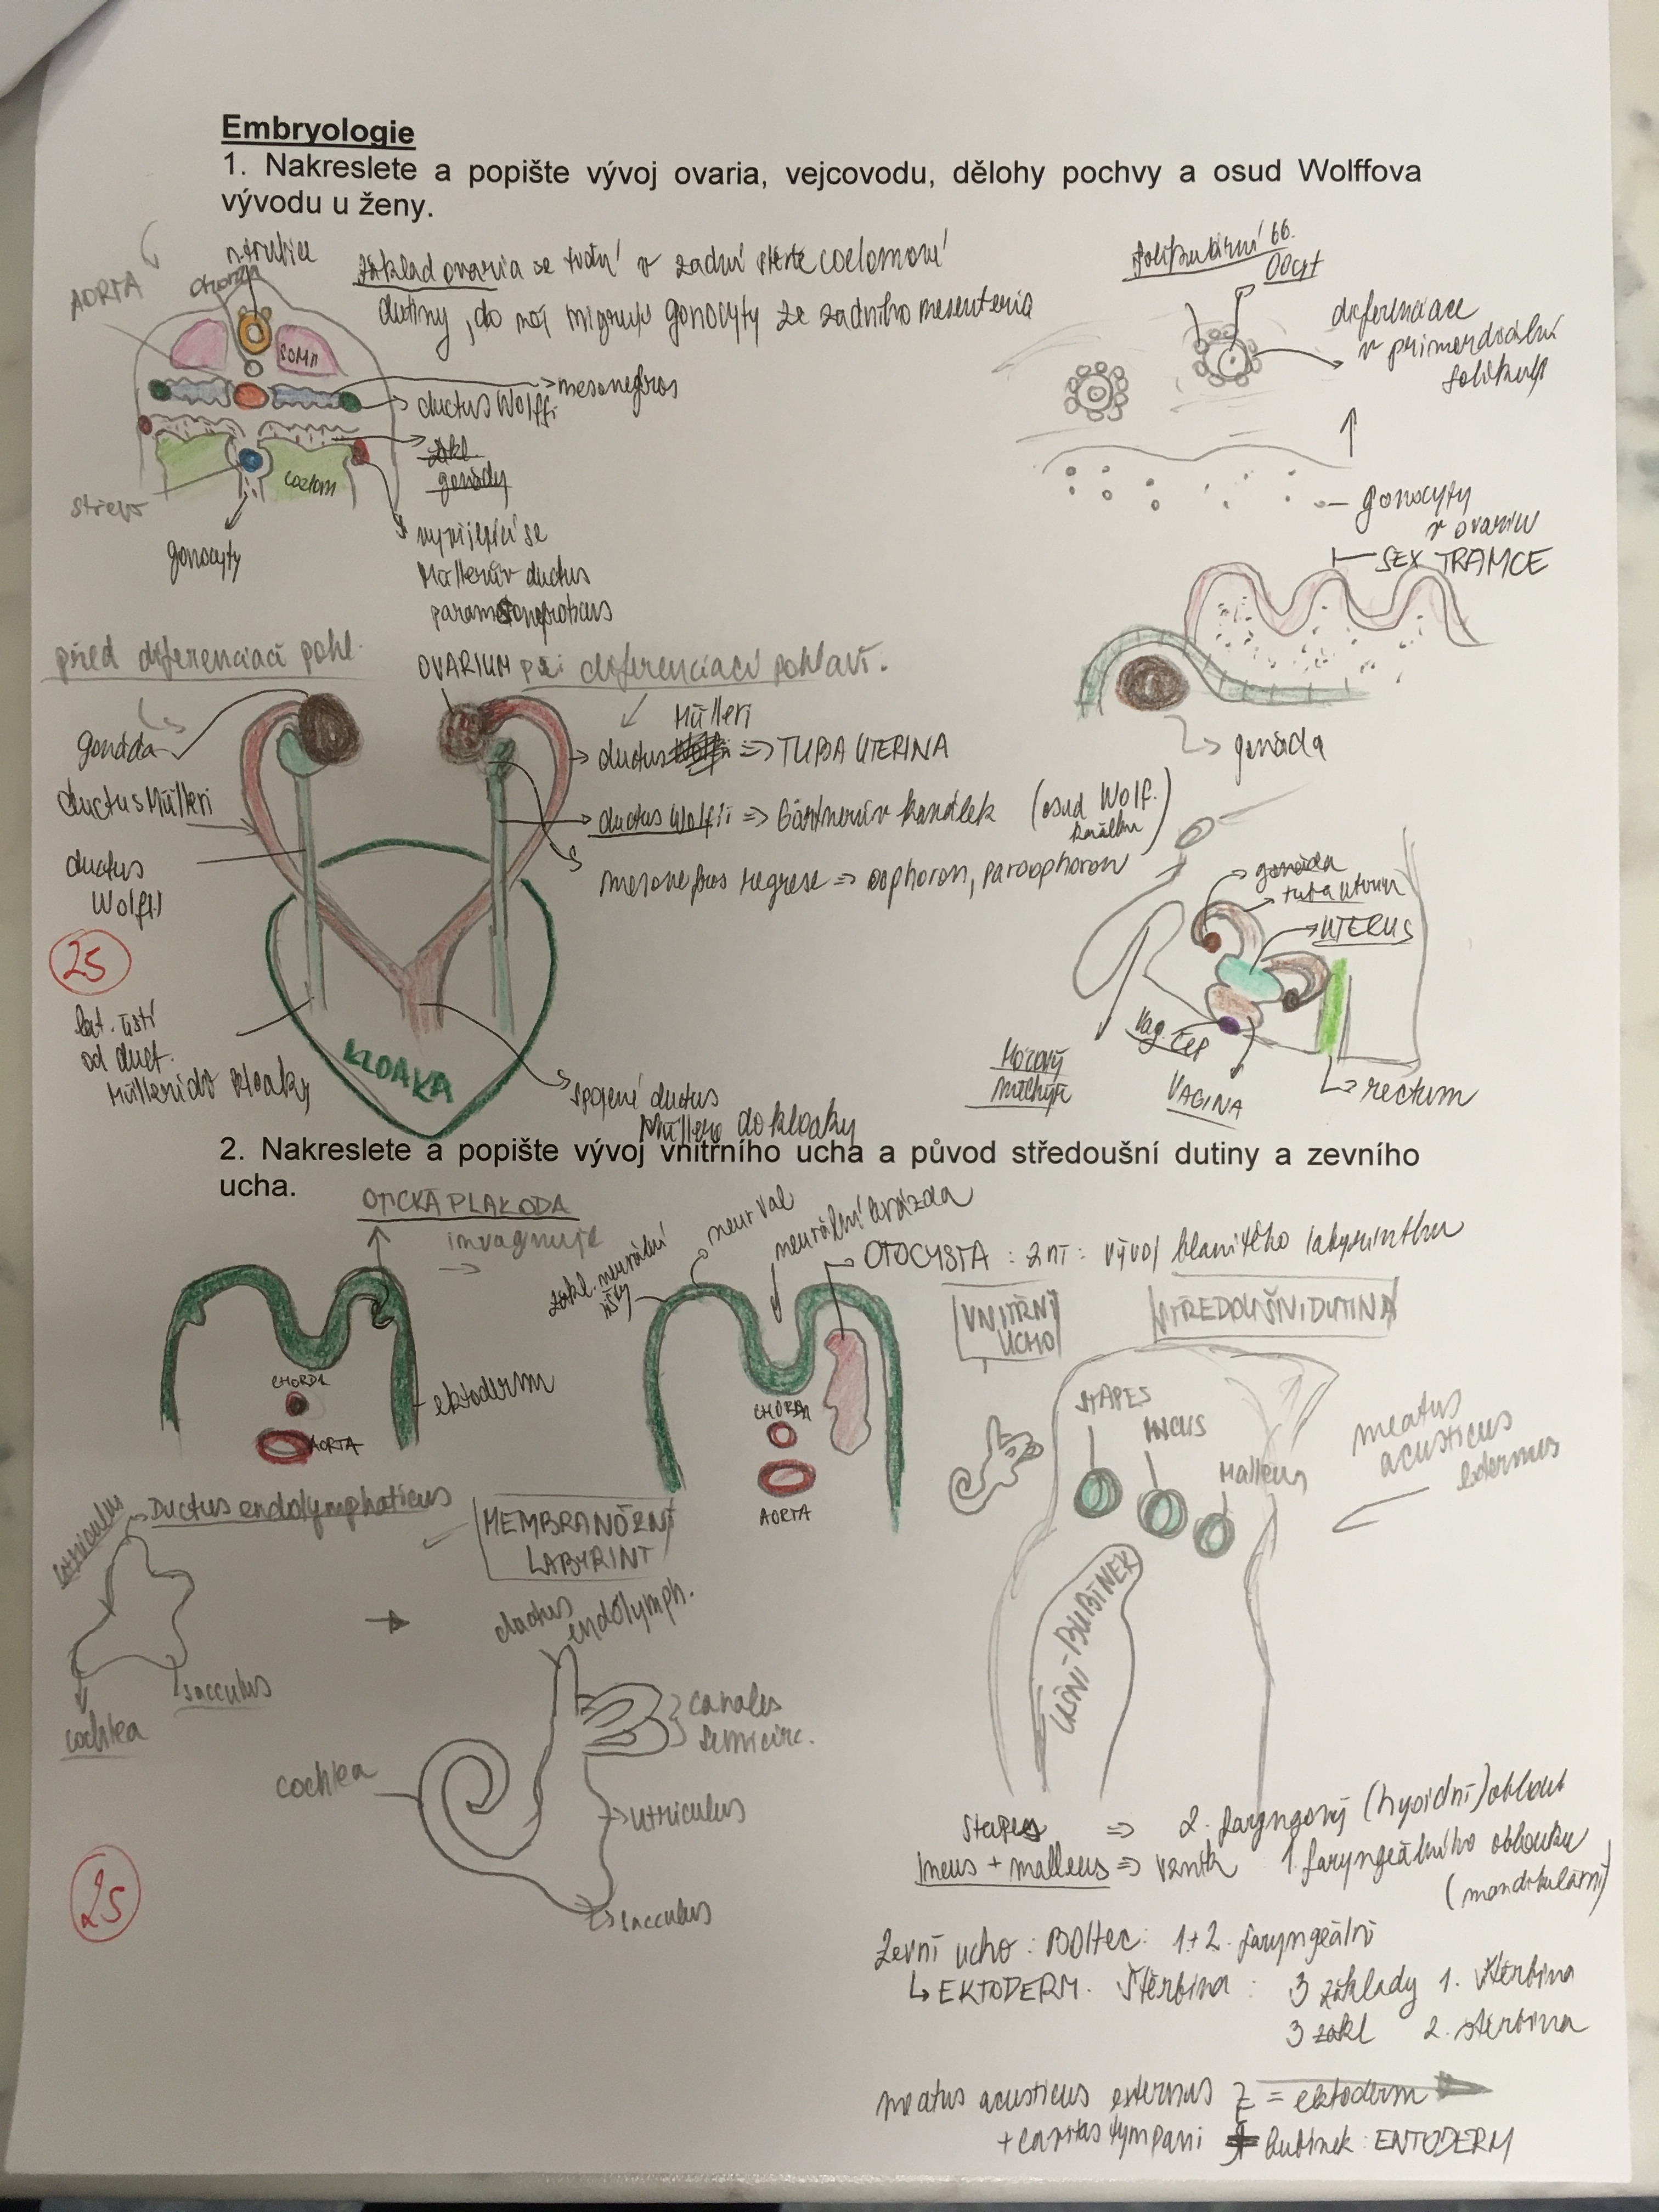 Embryologie
1. Nakreslete a popište vývoj ovaria, vejcovodu, dělohy pochvy a osud Wolffova
vývodu u ženy.
AORTA
chorda
n.trubice
základ ovaria se tvoří v zadní stěně coelomové
dutiny, do níž migrují gonocyty ze zadního mesenteria
SOMit
mesonefros
ductus Wolffi
zákl.
gonády
coelom
střevo
gonocyty
vyvíjející se
Müllerův ductus
folikulární bb.
Oocyt
diferenciace
v primordiální
folikuly
gonocyty
v ovariu
SEX TRAMCE
gonáda
před diferenciací pohl.
OVARIUM při diferenciaci pohlaví.
gonáda
ductus Mülleri
ductus
Wolffi
25
Mülleri
ductus => TUBA UTERINA
ductus Wolffi => Gärtnerův kanálek (osud Wolf.
kanálku)
mesonefros regrese => oophoron, paroophoron
KLOAKA
lat. ústí
od duct.
Mülleri do kloaky
spojené ductus
do kloaky
gonáda
tuba uterin
UTERUS
vag. čep
VAGINA
Močový
měchýř
rectum
2. Nakreslete a popište vývoj vnitřního ucha a původ středoušní dutiny a zevního
ucha.
OTICKÁ PLAKODA
invaginuje
zákl. neurální
lišty
neur val
neurální brázda
OTOCYSTA : vývoj blanitého labyrinthu
CHORDA
AORTA
ektoderm
CHORDA
AORTA
VNITŘNÍ
UCHO
STŘEDOUŠNÍ DUTINA
STAPES
INCUS
Malleus
meatus
acusticus
externus
UŠNÍ-BUBÍNEK
utriculus
Ductus endolymphaticus
MEMBRANÓZNÍ
LABYRINT
sacculus
cochlea
ductus
endolymph.
canales
semicirc.
cochlea
utriculus
sacculus
25
Stapes => 2. faryngový (hyoidní) oblouk
Incus + malleus => vznik 1. faryngeálního oblouku
(mandibulární)
Zevní ucho : BOltec: 1+2. faryngeální
↳ EKTODERM. štěrbina : 3 základy 1. štěrbina
3 zákl 2. štěrbina
meatus acusticus externus = ektoderm
+ cavitas tympani bubínek : ENTODERM